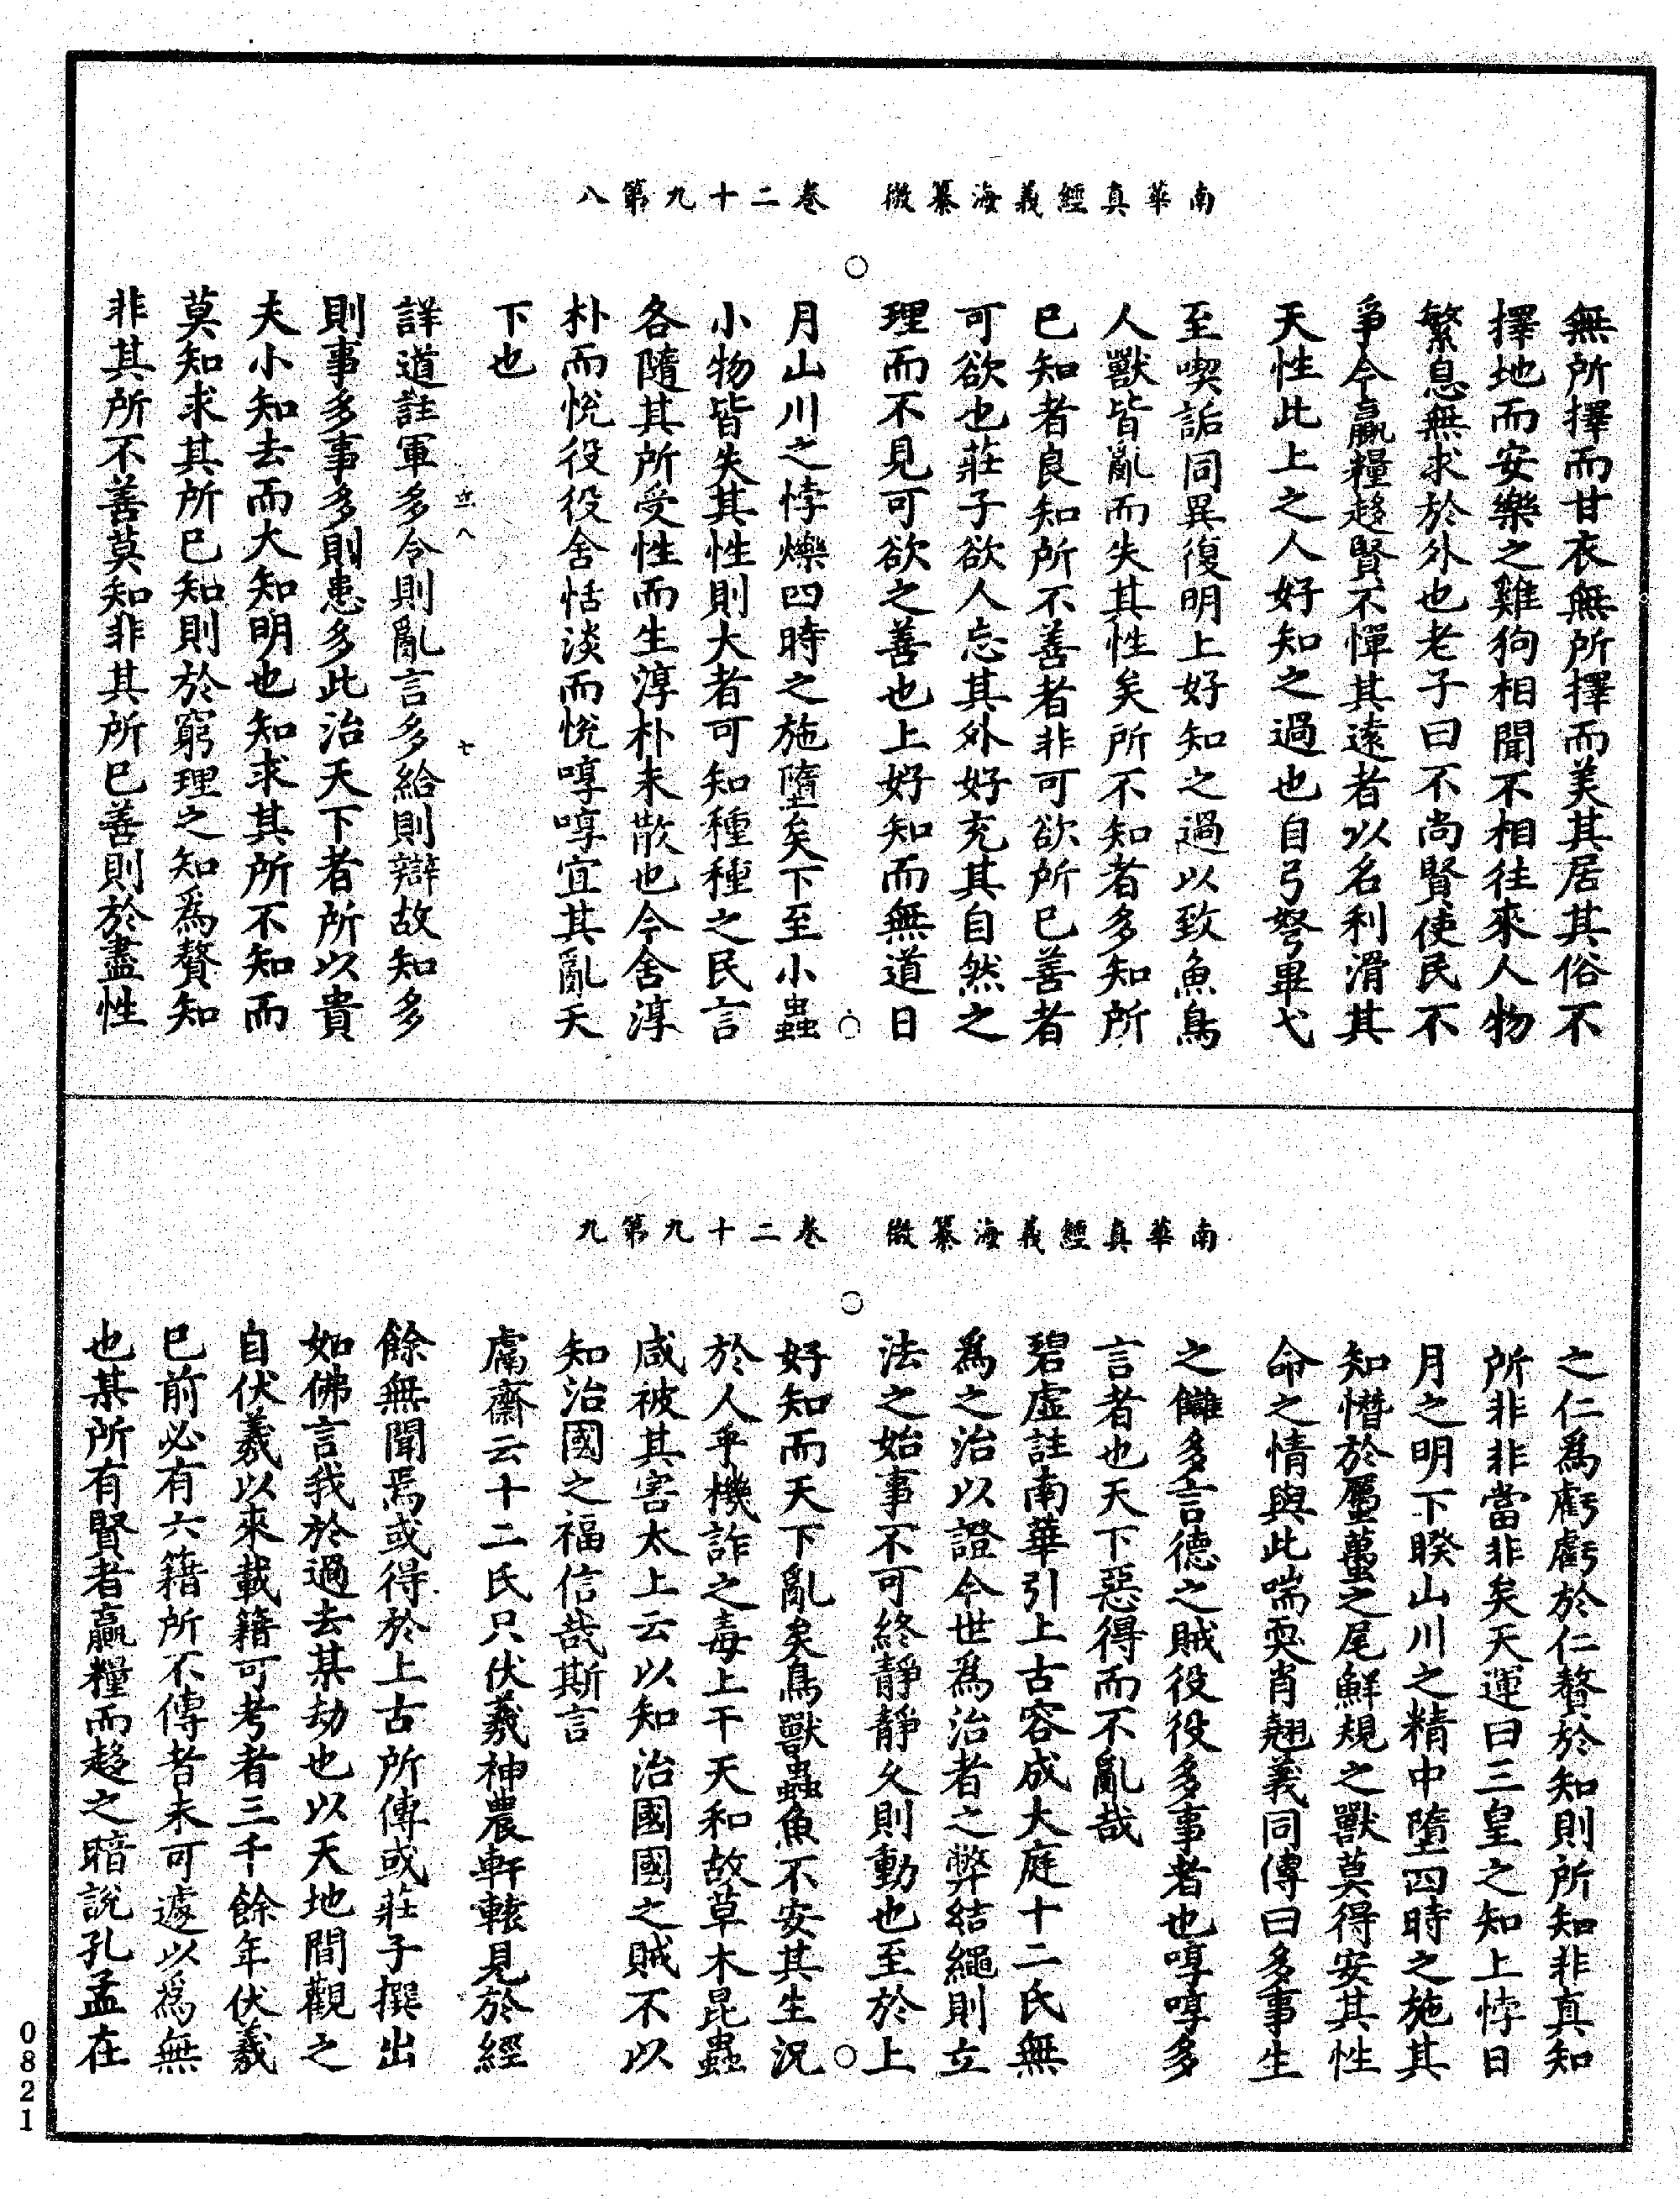 南華真經義海纂微　卷二十九第八
無所擇而甘衣無所擇而美其居其俗不
擇地而安樂之雞狗相聞不相往來人物
繁息無求於外也老子曰不尚賢使民不
爭今贏糧趍賢不憚其遠者以名利滑其
天性此上之人好知之過也自弓弩畢弋
至喫詬同異復明上好知之過以致魚鳥
人獸皆亂而失其性矣所不知者多知所
已知者良知所不善者非可欲所已善者
可欲也莊子欲人忘其外好充其自然之
理而不見可欲之善也上好知而無道日
月山川之悖爍四時之施墮矣下至小蟲
小物皆失其性則大者可知種種之民言
各隨其所受性而生淳朴未散也今舍淳
朴而悅役役舍恬淡而悅啍啍宜其亂天
下也
詳道註軍多令則亂言多給則辯故知多
則事多事多則患多此治天下者所以貴
夫小知去而大知明也知求其所不知而
莫知求其所已知則於窮理之知為贅知
非其所不善莫知非其所已善則於盡性
立八
七
南華真經義海纂微　卷二十九第九
之仁為虧虧於仁贅於知則所知非真知
所非非當非矣天運曰三皇之知上悖日
月之明下睽山川之精中墮四時之施其
知憯於蠆之尾鮮規之獸莫得安其性
命之情與此喘耎肖翹義同傳曰多事生
之讎多言德之賊役役多事者也啍啍多
言者也天下惡得而不亂哉
碧虛註南華引上古容成大庭十二氏無
為之治以證今世為治者之弊結繩則立
法之始事不可終靜靜久則動也至於上
好知而天下亂矣鳥獸蟲魚不安其生況
於人乎機詐之毒上干天和故草木昆蟲
咸被其害太上云以知治國國之賊不以
知治國之福信哉斯言
鬳齋云十二氏只伏羲神農軒轅見於經
餘無聞焉或得於上古所傳或莊子撰出
如佛言我於過去某劫也以天地間觀之
自伏羲以來載籍可考者三千餘年伏羲
已前必有六籍所不傳者未可遽以為無
也某所有賢者贏糧而趍之暗說孔孟在
0821